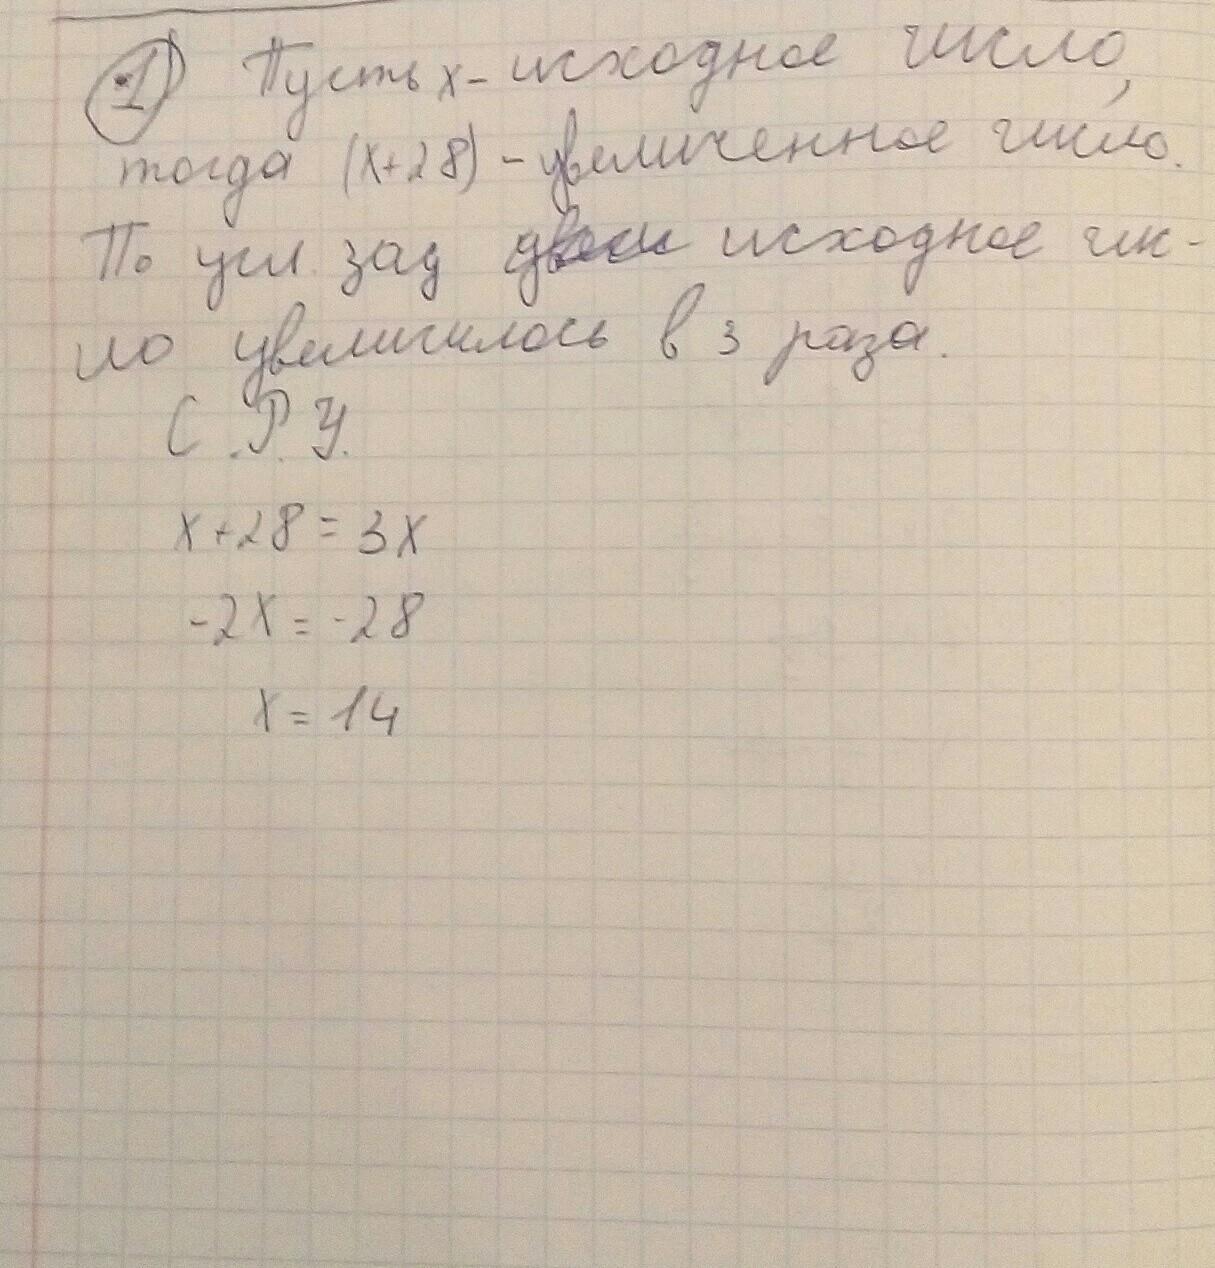 1) Пусть x - исходное число,
тогда (x+28) - увеличенное число.
По усл. зад исходное чис-
ло увеличилось в 3 раза.
С.Р.У.
x+28=3x
-2x=-28
x=14